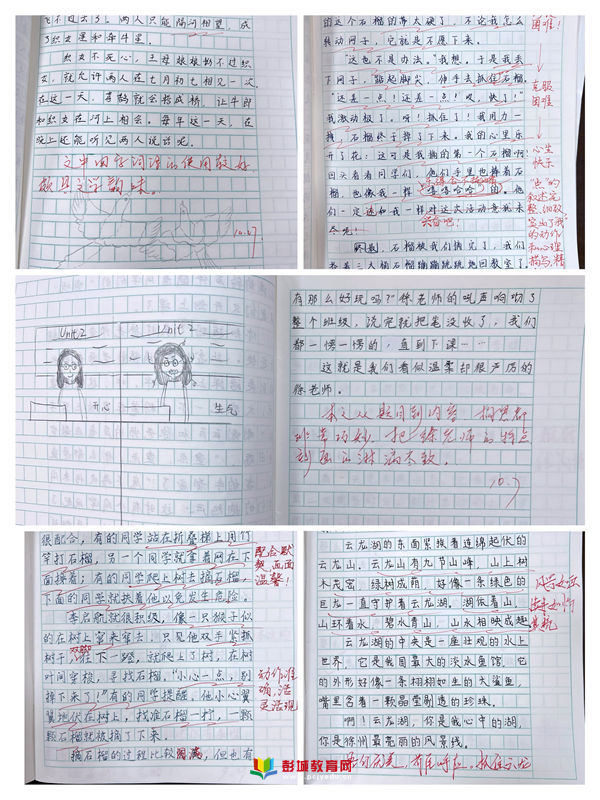 飞不过去。两人只能隔河相望，成
了织女星和牵牛星。
织女不死心，王母娘娘拗不过织
女，就允许两人在七月初七相见一次。
在这一天，喜鹊就会搭成桥，让牛郎
和织女在河上相会。每年这一天，在
晚上还能听见两人说话呢。
文中四字词语的使用较好
颇具文学韵味。
10.27
的这个石榴的蒂太硬了，不论我怎么
转动网子，它就是不愿下来。
“这也不是办法。”我想。于是我丢
下网子，踮起脚尖，伸手去抓住石榴，
“这是一点！还差一点！哎，快了！”
我激动极了，呀！抓住了！我用力一
拽，石榴终于掉了下来。我的心里乐
开了花：这可是我摘的第一个石榴啊
回头看看同学们，他们手里也捧着石
榴，也像我一样
嘻嘻哈哈的。他
们一定也和我一样对这次活动意犹未
尽吧！
终于，石榴被我们摘完了，我们
困难！
克服
困难
心生
快乐
“点”的
叙述完
整，细致
写出了“我”
的动作
和心理
描写，精
Unit 2
Unit 2
开心
生气
有那么好玩吗？”徐老师的吼声响彻了
整个班级，说完就把笔没收了，我们
都一愣一愣的，直到下课……
这就是我们看似温柔却很严厉的
徐老师。
本文从题目到内容，构思都
非常巧妙，把徐老师的特点
刻画的淋漓尽致。
10.7
很配合，有的同学站在折叠梯上用竹
竿打石榴，另一个同学就拿着网在下
面接着；有的同学爬上树去摘石榴，
下面的同学就扶着他以免发生危险。
李启航就很积极，像一只猴子似
的在树上窜来窜去，只见他双手紧抓
树干，
双脚
往下一蹬，就爬上了树，在树
叶间穿梭，寻找石榴，“小心一点，别
掉下来了！”有的同学提醒。他小心翼
翼地伏在树上，找准石榴一打，一颗
颗石榴就被摘了下来。
摘石榴的过程比较圆满，但也有
配合默
契，画面
温馨！
动作准
确，活
灵活现
云龙湖的东面紧挨着连绵起伏的
云龙山。云龙山有九节山峰，山上树
木茂密，绿树成荫，好像一条绿色的
巨龙一直守护着云龙湖。湖依着山，
山环着水，碧水青山，山水相映成趣
云龙湖的中央是一座壮观的水上
世界，它是我国最大的淡水鱼馆，它
的外形好像一条栩栩如生的大鲨鱼，
嘴里含着一颗晶莹剔透的珍珠。
啊！云龙湖，你是我心中的湖，
你是徐州最亮丽的风景线。
彭城教育网
www.pcjyedu.cn